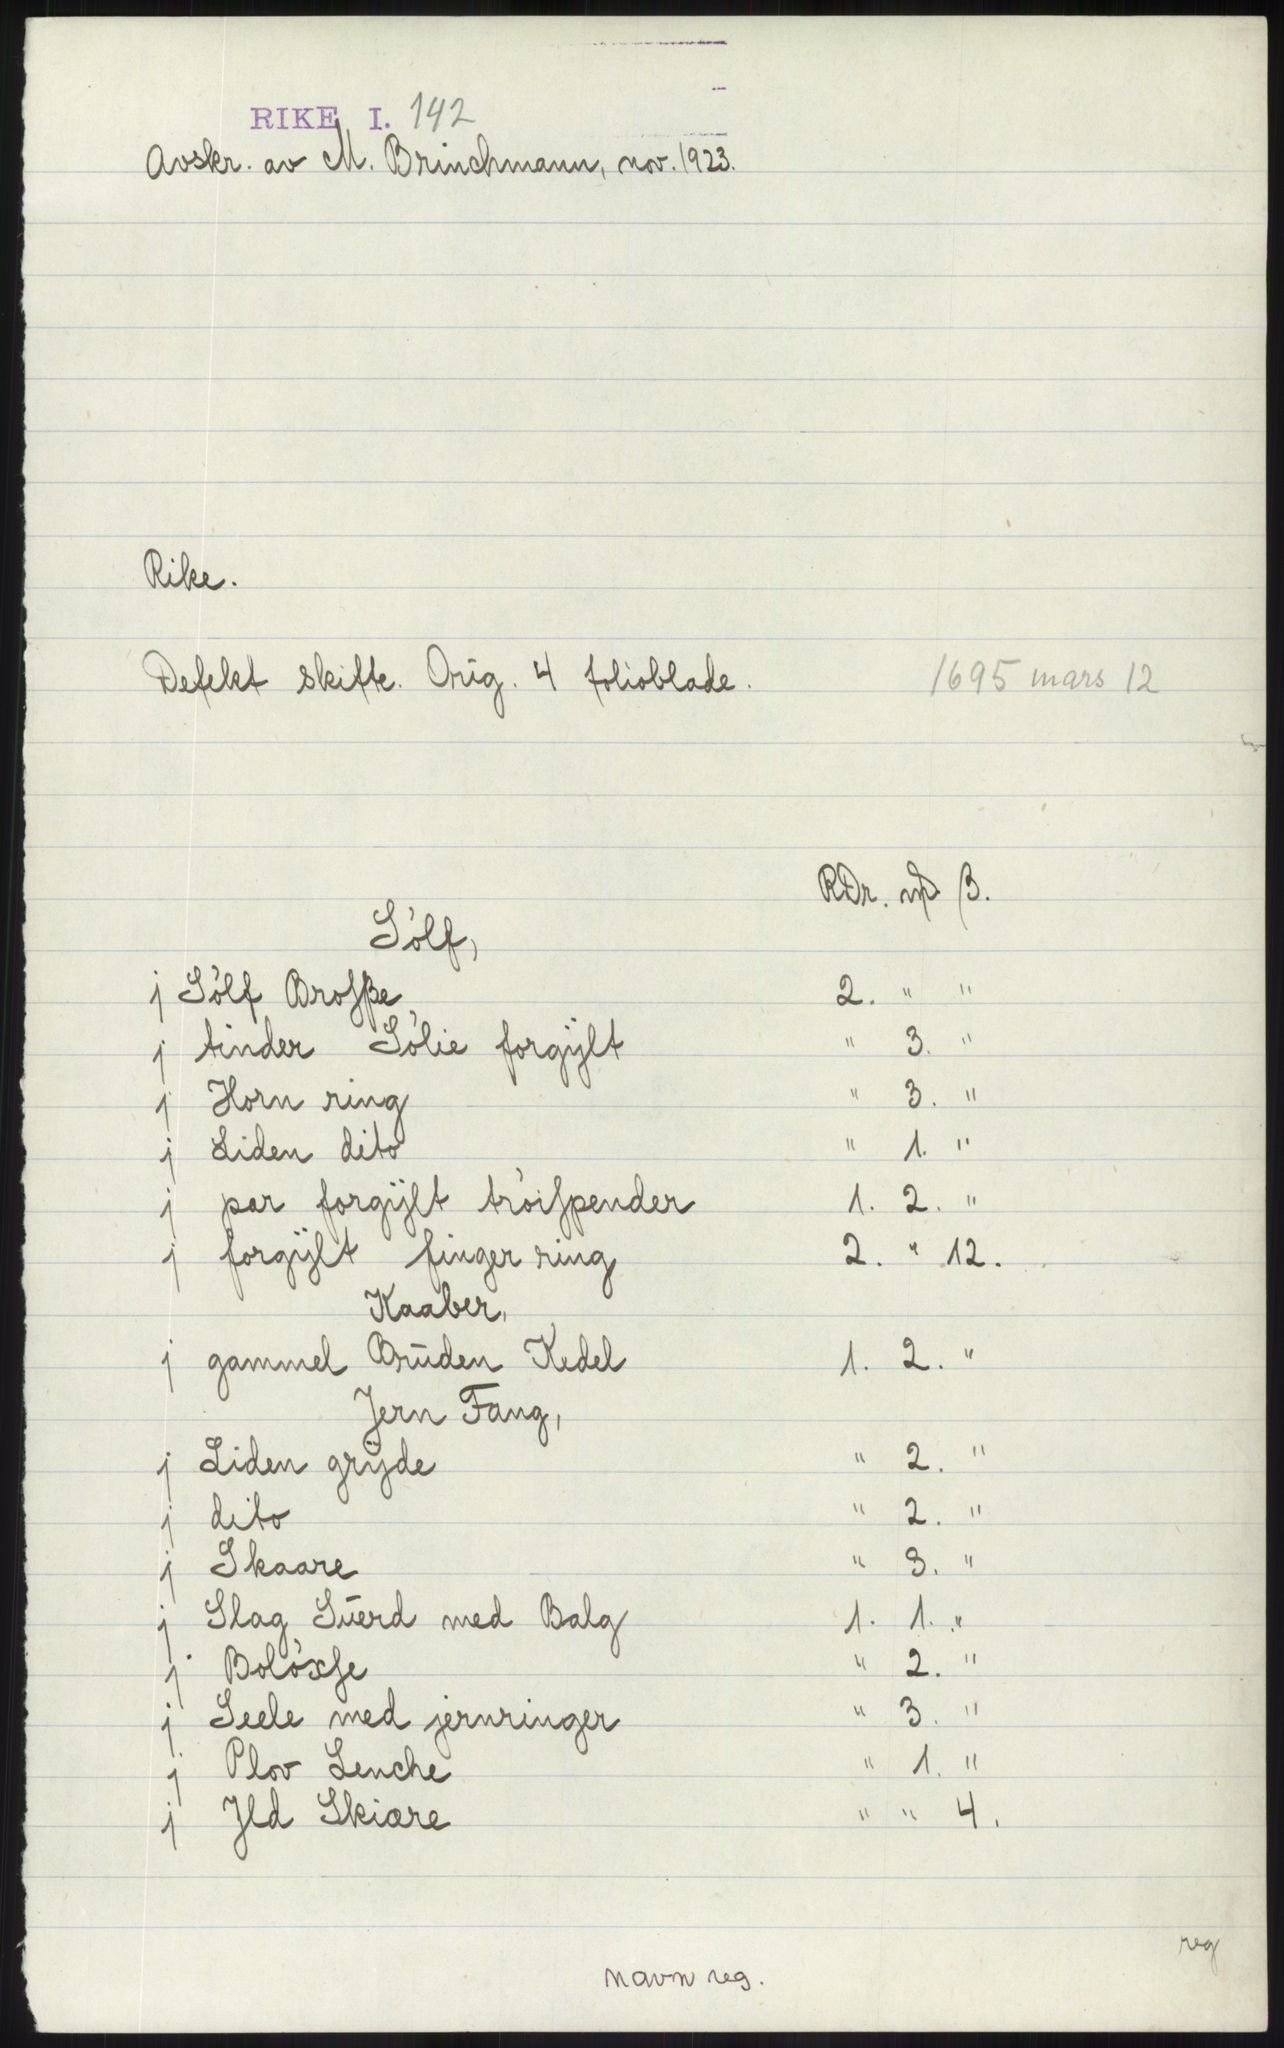 RIKE I. 142
Avskr. av M. Brinchmann, nov. 1923.
Rike.
Defekt skifte. Orig. 4 folioblade. 1695 mars 12
RDr. mþ β.
Sólf,
j Sólf Broſße 2. " "
j tinder Sólie forgÿlt " 3. "
j Horn ring " 3. "
j Liden dito " 1. "
j par forgÿlt tróiſpender 1. 2. "
j forgÿlt finger ring 2. " 12.
Kaaber,
j gammel Brūden Kedel 1. 2. "
Jern Fang,
j Liden grÿde " 2. "
j dito " 2. "
j Skaare " 3. "
j Slag Sūerd med Balg 1. 1. "
j Bolóxſe " 2. "
j Seele med jernringer " 3. "
j Plov Lenche " 1. "
j Jld Skiære " " 4.
reg
navn reg.